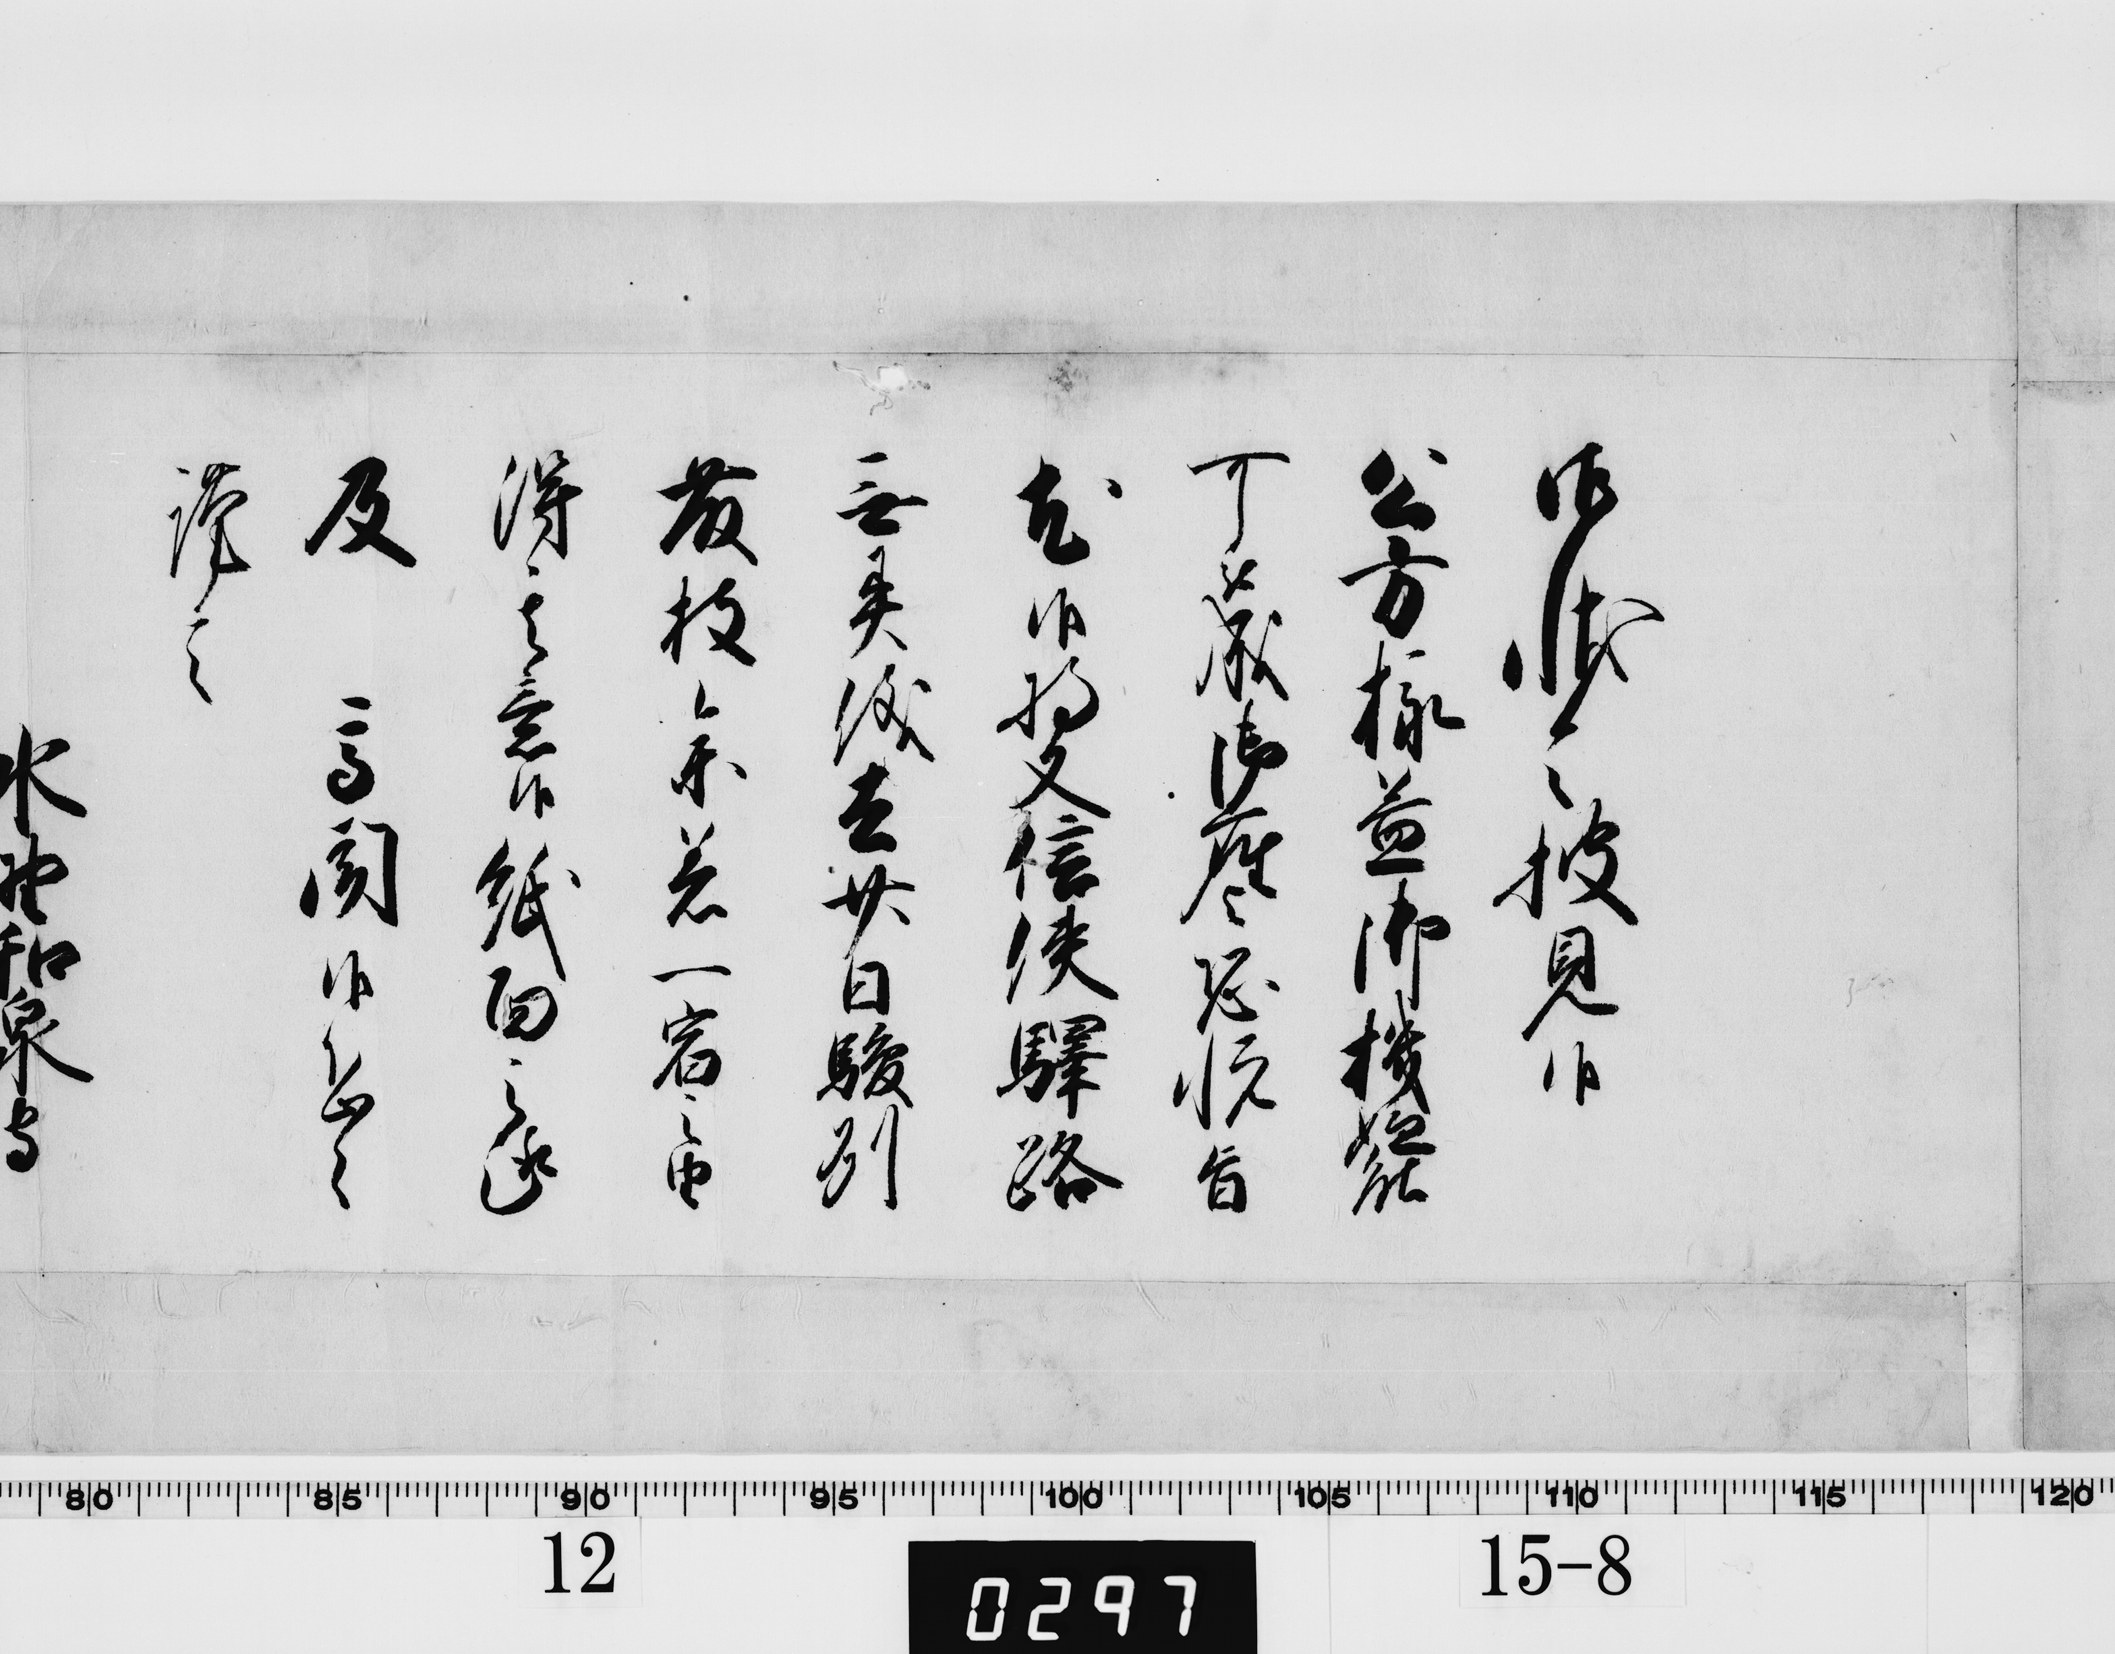 御状令披見候
公方様益御機嫌能
可被成御座恐悦旨
尤候将又信使驛路
無異儀去廿日駿州
發投向来着一宿之由
得其意候紙面之趣
及 高聞候恐々
謹言
水野和泉守
80 85 90 95 100 105 110 115 120
12
0297
15-8